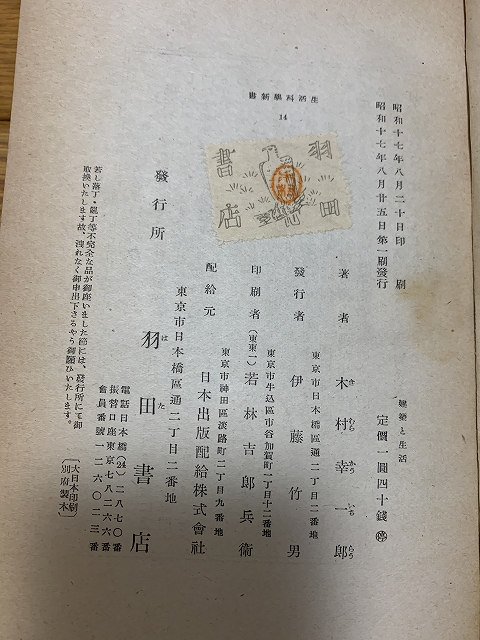 生活科學新書
14
羽田書店
昭和十七年八月二十日印刷
昭和十七年八月廿五日第一刷發行
建築と生活
定價一圓四十錢
著者 木村幸一郎
き むら かう いち らう
東京市日本橋區通二丁目二番地
發行者 伊藤竹男
東京市牛込區市谷加賀町一丁目十二番地
印刷者(東東一) 若林吉郎兵衛
東京市神田區淡路町二丁目九番地
配給元 日本出版配給株式會社
東京市日本橋區通二丁目二番地
發行所 羽田書店
は た
電話日本橋(24)二八七〇番
振替口座東京七八二六六番
會員番號一二六〇二三番
若し落丁・亂丁等不完全な品が御座いました節には、發行所にて御
取換いたします故、洩れなく御申出下さるやう御願ひいたします。
大日本印刷
別府製本